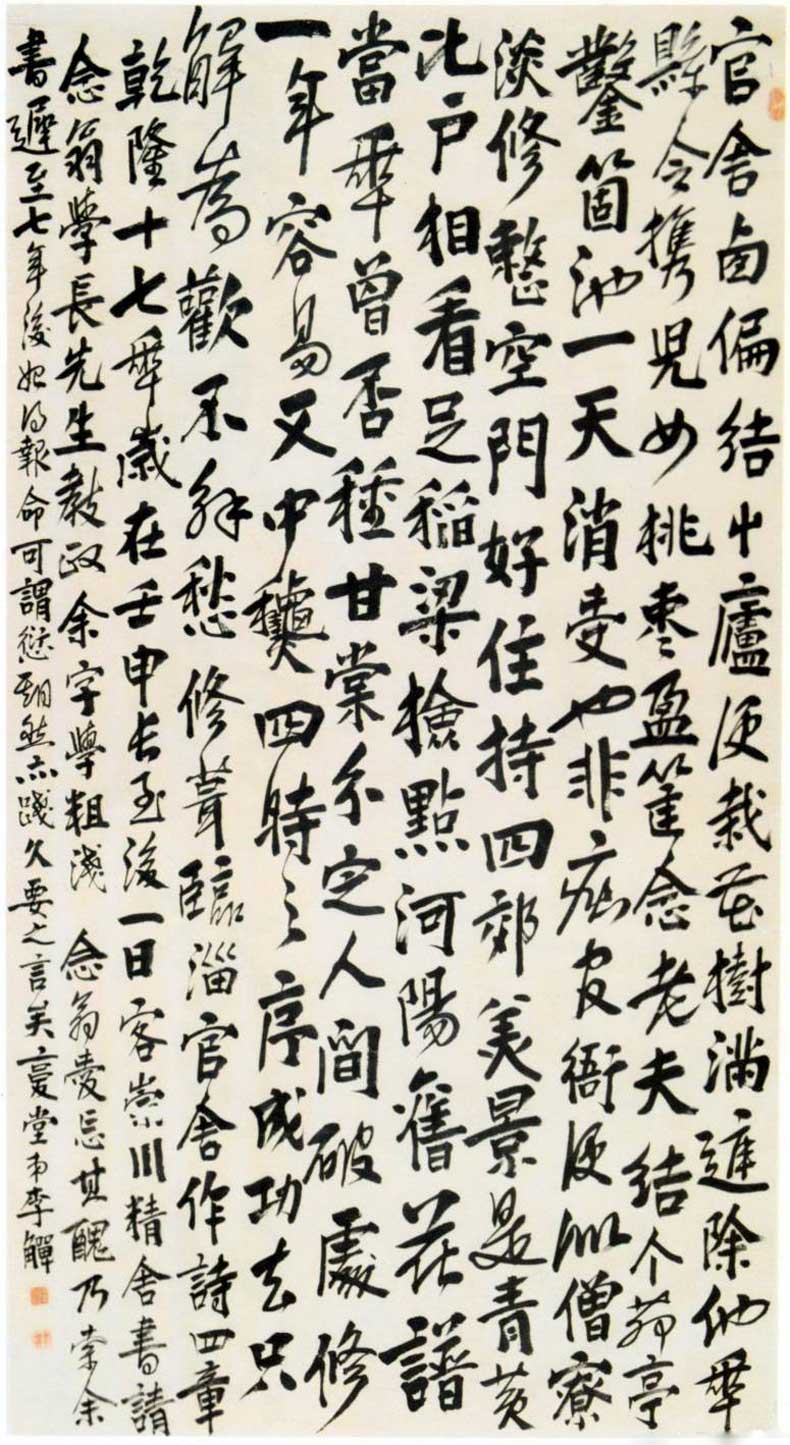 官舍卥偏結屮廬便栽花樹滿庭除他年
縣令攜兒女桃棗盈筐念老夫結个茆亭
鑿箇池一天消受也非癡官衙便似僧寮
淡修整空門好住持四郊美景是青黃
比戶相看足稻粱撿點河陽舊花譜
當年曾否種甘棠分定人間破處修
一年容易又中龝四時之序成功去只
解為歡不解愁修葺臨淄官舍作詩四章
乾隆十七年歲在壬申長至後一日客崇川精舍書請
念翁學長先生教政余字學粗淺 念翁愛忘其醜乃索余
書遲至七年後始得報命可謂愆期然亦踐久要之言矣復堂弟李鱓